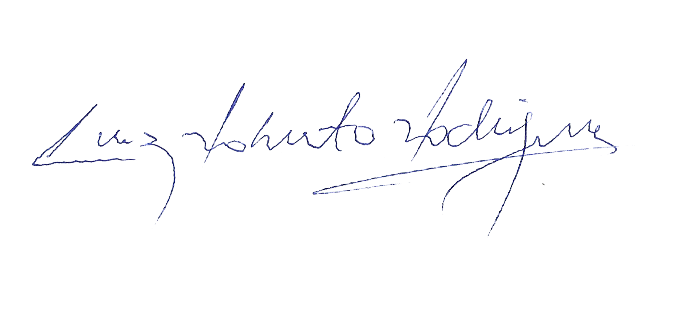 Luiz Roberto Rodrigues